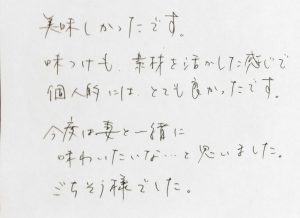 美味しかったです。
味つけも、素材を活かした感じで
個人的には、とても良かったです。
今度は妻と一緒に
味わいたいな…と思いました。
ごちそう様でした。